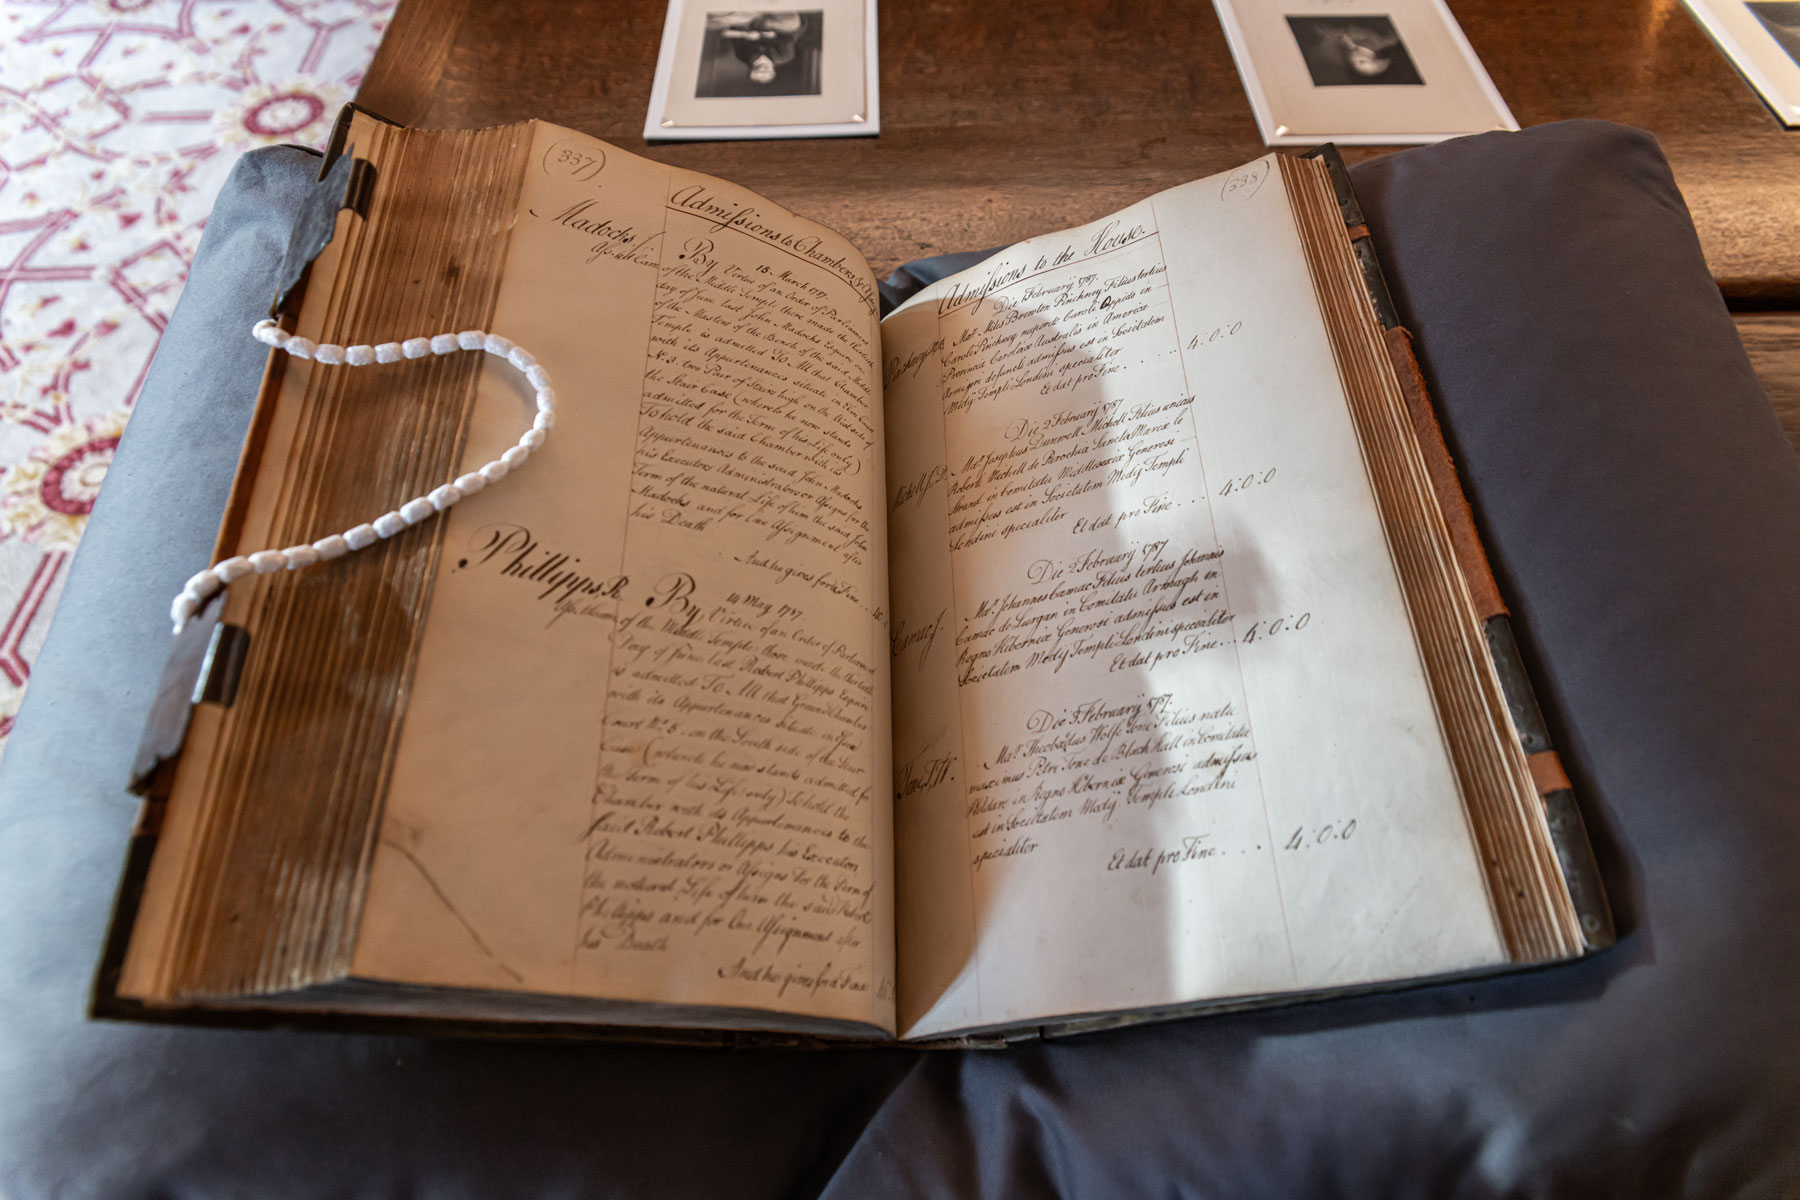 (337)
Admiſsions to Chambers &c
Madocks J.
15 March 1787.
By Virtue of an Order of Parliament
of the Middle Temple there made the thirtieth
day of June last John Madocks Esquire one
of the Masters of the Bench of the said Middle
Temple is admitted To All that Chamber
with its Appurtenances situate in Elm Court
N. 3 two Pair of Stairs high on the West side of
the Stair Case (wherein he now stands
admitted for the Term of his Life only)
To hold the said Chamber with its
Appurtenances to the said John Madocks
his Executors Administrators or Aſsigns for the
Term of the natural Life of him the said John
Madocks and for One Aſsignment after
his Death
And he gives for a Fine
Phillipps, R.
14 May 1787
By Virtue of an Order of Parliament
of the Middle Temple there made the thirtieth
Day of June last Robert Phillipps Esquire
is admitted To All that Ground Chamber
with its Appurtenances situate in Elm
Court No. 5. on the South side of the Stair
Case (wherein he now stands admitted for
the Term of his Life only) To hold the
Chamber with its Appurtenances to the
said Robert Phillipps his Executors
Administrators or Aſsigns for the Term of
the natural Life of him the said Robert
Phillipps and for One Aſsignment after
his Death
And he gives for a Fine
(338)
Admiſsions to the House.
Die Februarij 1787.
Pinckney M. B.
Mar. Miles Brewton Pinckney Filius tertius
Caroli Pinckney nuper de Caroli Oppido in
Provincia Carolinæ Australis in America
Armigeri defuncti admiſsus est in Societatem
Medij Templi Londini specialiter
Et dat pro Fine. . . . . 4:0:0
Die 2 Februarij 1787
Michell J. D.
Mar. Josephus Dunwell Michell Filius unicus
Robert Michell de Parochia Sanctæ Mariæ le
Strand in Comitatu Middlesexiæ Generosi
admiſsus est in Societatem Medij Templi
Londini specialiter
Et dat pro Fine. . . . 4:0:0
Die 2 Februarij 1787
Camac J.
Mar. Johannes Camac Filius tertius Johannis
Camac de Lurgan in Comitatu Armagh in
Regno Hiberniæ Generosi admiſsus est in
Societatem Medij Templi Londini specialiter
Et dat pro Fine. . . 4:0:0
Die 3 Februarij 1787.
Tone, T. W.
Mar. Theobaldus Wolfe Tone Filius natu
maximus Petri Tone de Black Hall in Comitatu
Kildare in Regno Hiberniæ Generosi admiſsus
est in Societatem Medij Templi Londini
specialiter
Et dat pro Fine. . . . 4:0:0